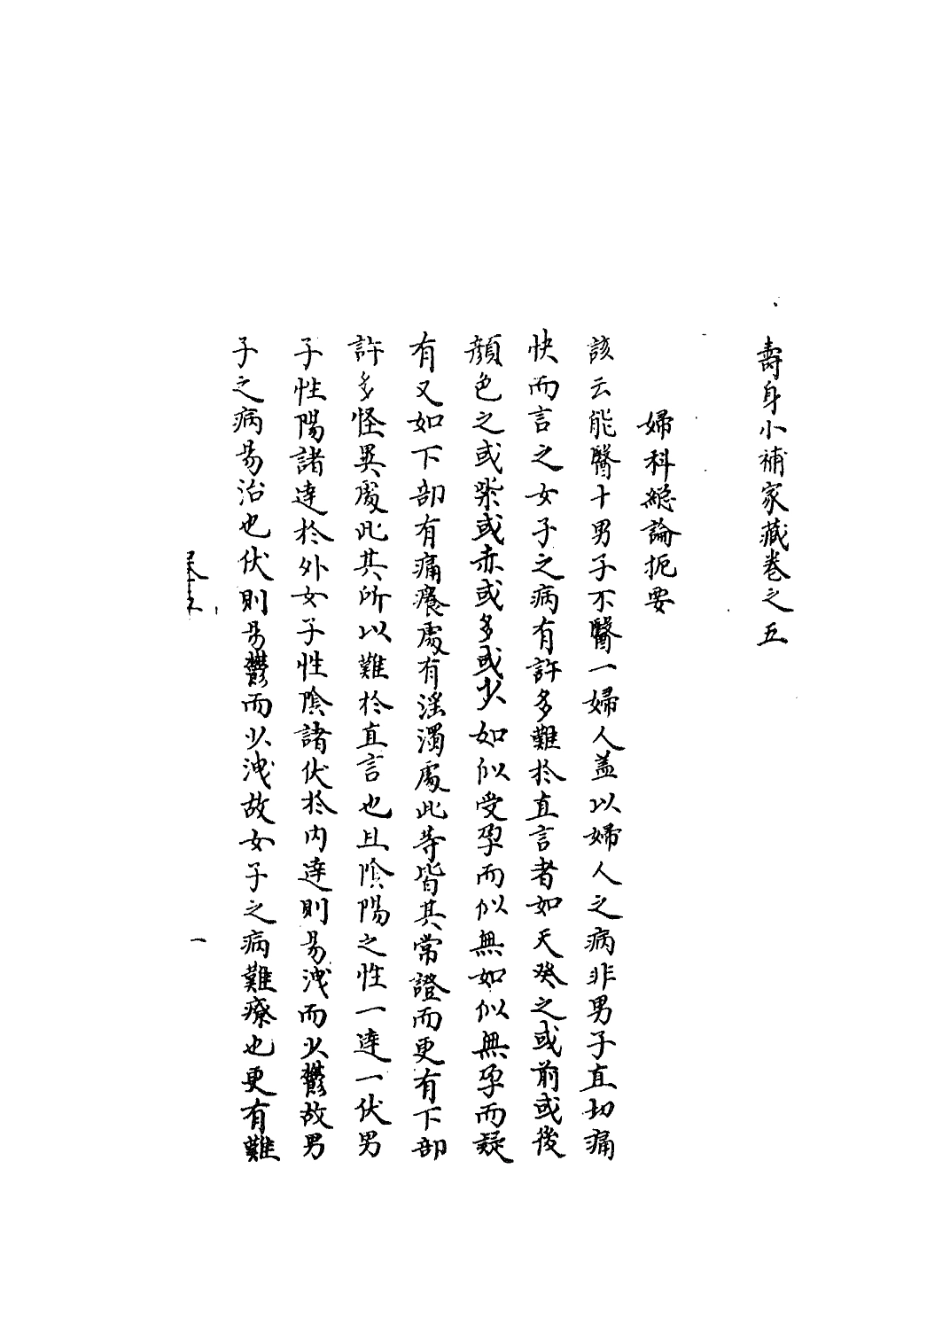 壽身小補家藏卷之五
婦科總論扼要
該云能醫十男子不醫一婦人蓋以婦人之病非男子直切痛
快而言之女子之病有許多難於直言者如天癸之或前或後
顏色之或紫或赤或多或少如似受孕而似無如似無孕而疑
有又如下部有痛癢處有淫濁處此等皆其常證而更有下部
許多怪異處此其所以難於直言也且陰陽之性一達一伏男
子性陽諸達於外女子性陰諸伏於內達則易洩而少鬱故男
子之病易治也伏則易鬱而少洩故女子之病難療也更有難
一